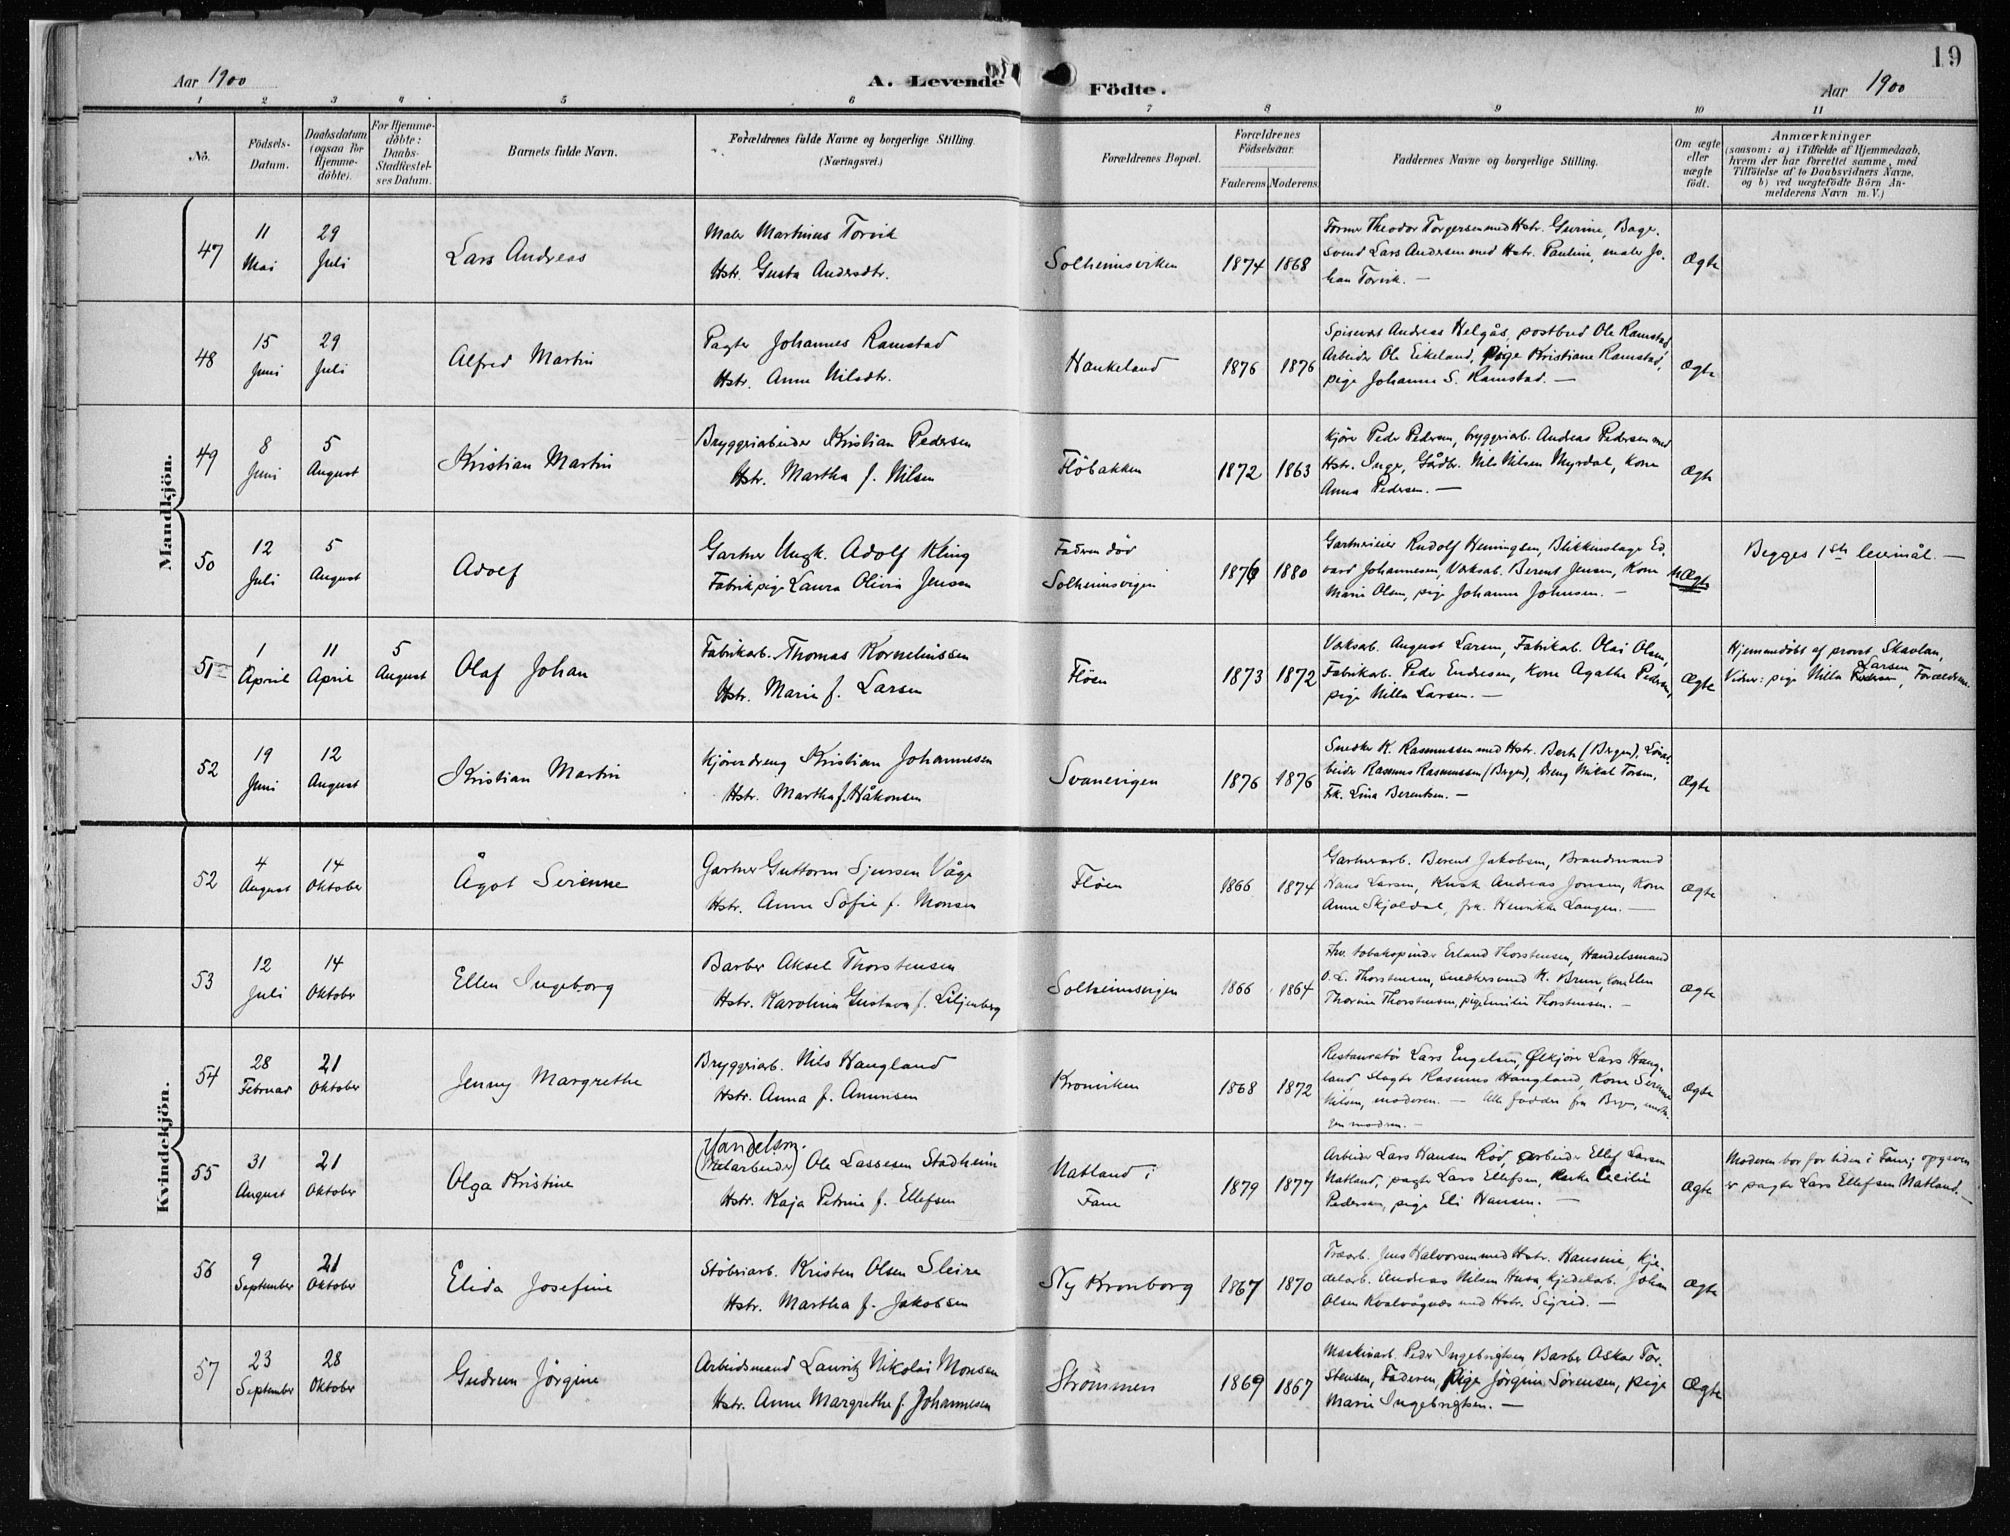 19
Aar 1900
A. Levende Födte.
Aar 1900
1 2 3 4 5 6 7 8 9 10 11
No.
Födsels-Datum.
Daabsdatum (ogsaa for Hjemme-döbte).
For Hjemme-döbte: Daabs-Stadfæstel-ses Datum.
Barnets fulde Navn.
Forældrenes fulde Navne og borgerlige Stilling. (Næringsvei.)
Forældrenes Bopæl.
Forældrenes Födselsaar.
Faderens Moderens
Faddernes Navne og borgerlige Stilling.
Om ægte eller uægte födt.
Anmærkninger
(saasom: a) i Tilfælde af Hjemmedaab, hvem der har forrettet samme, med Tilföielse af to Daabsvidners Navne, og b) ved uægtefödte Börn An-melderens Navn m. V.)
Mandkjön.
47
11 Mai
29 Juli
Lars Andreas
Maler Martinus Torvik
Hstr. Gusta Andersdtr.
Solheimsviken
1874 1868
Former Theodor Torgersen med Hstr. Gurine, Bager-
svend Lars Andersen med Hstr. Pauline, maler Jo-
han Torvik. —
Ægte
48
15 Juni
29 Juli
Alfred Martin
Pagter Johannes Ramstad
Hstr. Anne Nilsdtr.
Haukeland
1876 1876
Spisevært Andreas Helgås, postbud Ole Ramstad,
Arbeider Ole Eikeland, pige Kristiane Ramstad,
pige Johanne S. Ramstad. —
Ægte
49
8 Juni
5 August
Kristian Martin
Bryggeriarbeider Kristian Pedersen
Hstr. Martha f. Nilsen
Flöbakken
1872 1863
Kjörer Peder Pedersen, bryggeriarb. Andreas Pedersen med
Hstr. Inge, Gådbr. Nils Nilsen Myrdal, Kone
Anna Pedersen. —
Ægte
50
12 Juli
5 August
Adolf
Gartner Ungk. Adolf Kling
Fabrikpige Laura Olivia Jensen
Faderen död
Solheimsvigen
1876 1880
Gartnereier Rudolf Hemingsen, Blikkenslager Ed-
vard Johannesen, Værksarb. Berent Jensen, Kone
Marie Olsen, pige Johanne Johnsen. —
uÆgte
Begges 1ste leiermål. —
51
1 April
11 April
5 August
Olaf Johan
Fabrikarb. Thomas Kornelinssen
Hstr. Marie f. Larsen
Flöen
1873 1872
Værksarb. August Larsen, Fabrikarb. Olai Olsen,
Fabrikarb. Peder Endresen, Kone Agathe Pedersen,
pige Nilla Larsen. —
Ægte
Hjemmedöbt af provst Skavlan,
Vidner: pige Nilla Larsen, Forældrene.
52
19 Juni
12 August
Kristian Martin
Kjöredreng Kristian Johannesen
Hstr. Martha f. Håkonsen
Svanevigen
1876 1876
Snedker K. Rasmussen med Hstr. Berte (Bergen), Lösar-
beider Rasmus Rasmussen (Bergen), Dreng Mikal Torsen,
Frk. Lina Berentsen. —
Ægte
Kvindekjön.
52
4 August
14 Oktober
Ågot Serianne
Gartner Guttorm Sjursen Våge
Hstr. Anne Sofie f. Monsen
Flöen
1866 1874
Gartnerarb. Berent Jakobsen, Brandmand
Hans Larsen, Kusk Andreas Jonsen, Kone
Anne Skjoldal, frk. Henrikke Langen. —
Ægte
53
12 Juli
14 Oktober
Ellen Ingeborg
Barber Aksel Thorstensen
Hstr. Karolina Gustava f. Liljenberg
Solheimsvigen
1866 1864
Fhv. tobakspinder Erland Thorstensen, Handelsmand
O. L. Thorstensen, snedkersvend K. Brun, Kone Elen
Thorine Thorstensen, pige Emilie Thorstensen. —
Ægte
54
28 Februar
21 Oktober
Jenny Margrethe
Bryggeriarb. Nils Haugland
Hstr. Anna f. Amunsen
Kronviken
1868 1872
Restauratör Lars Engelsen, Ölkjörer Lars Haug-
land, Slagter Rasmus Haugland, Kone Serianne
Nilsen, moderen. — Alle faddere fra Bergen, undta-
gen modren. —
Ægte
55
31 August
21 Oktober
Olga Kristine
Handelsm.
(Melarbeider) Ole Lassesen Stadheim
Hstr. Kaja Petrine f. Ellefsen
Natland i
Fane
1879 1877
Arbeider Lars Hansen Röd, arbeider Ellef Larsen
Natland, pagter Lars Ellefsen, Enke Cecilie
Pedersen, pige Eli Hansen. —
Ægte
Moderen bor for tiden i Fane; opgiven
er pagter Lars Ellefsen Natland. —
56
9 September
21 Oktober
Elida Josefine
Stöberiarb. Kristen Olsen Sleire
Hstr. Martha f. Jakobsen
Ny Kronborg
1867 1870
Træarb. Jens Halvorsen med Hstr. Hansine, Kje-
delarb. Andreas Nilsen Husa, Kjedelarb. Johan
Olsen Kvalvågnæs med Hstr. Sigrid. —
Ægte
57
23 September
28 Oktober
Gudrun Jörgine
Arbeidsmand Lauritz Nikolai Monsen
Hstr. Anne Margrethe f. Johannesen
Strömmen
1869 1867
Maskinarb. Peder Ingebrigtsen, Barber Oskar Tor-
stensen, Faderen, pige Jörgine Sörensen, pige
Marie Ingebrigtsen. —
Ægte